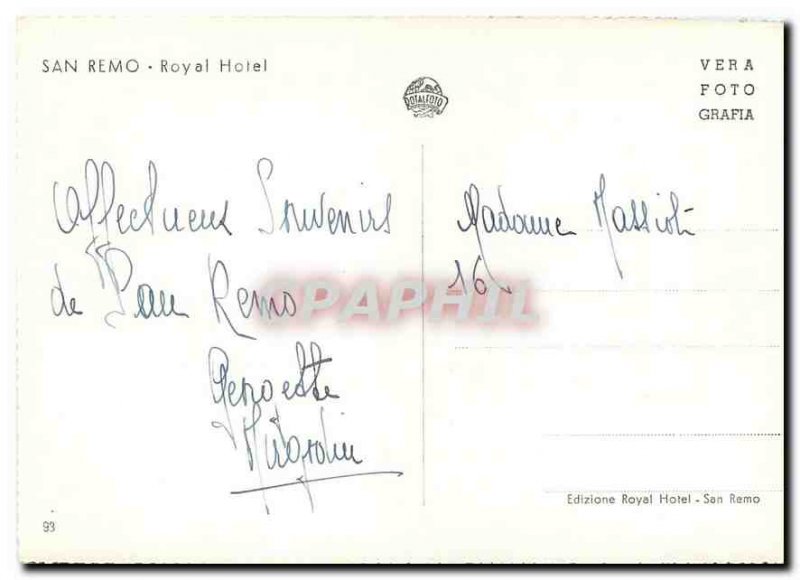 SAN REMO - Royal Hotel
VERA
FOTO
GRAFIA
ROTALFOTO
MILANO
Affectueux Souvenirs
de San Remo
Madame Massioti
16,
CPAPHIL
Edizione Royal Hotel - San Remo
93